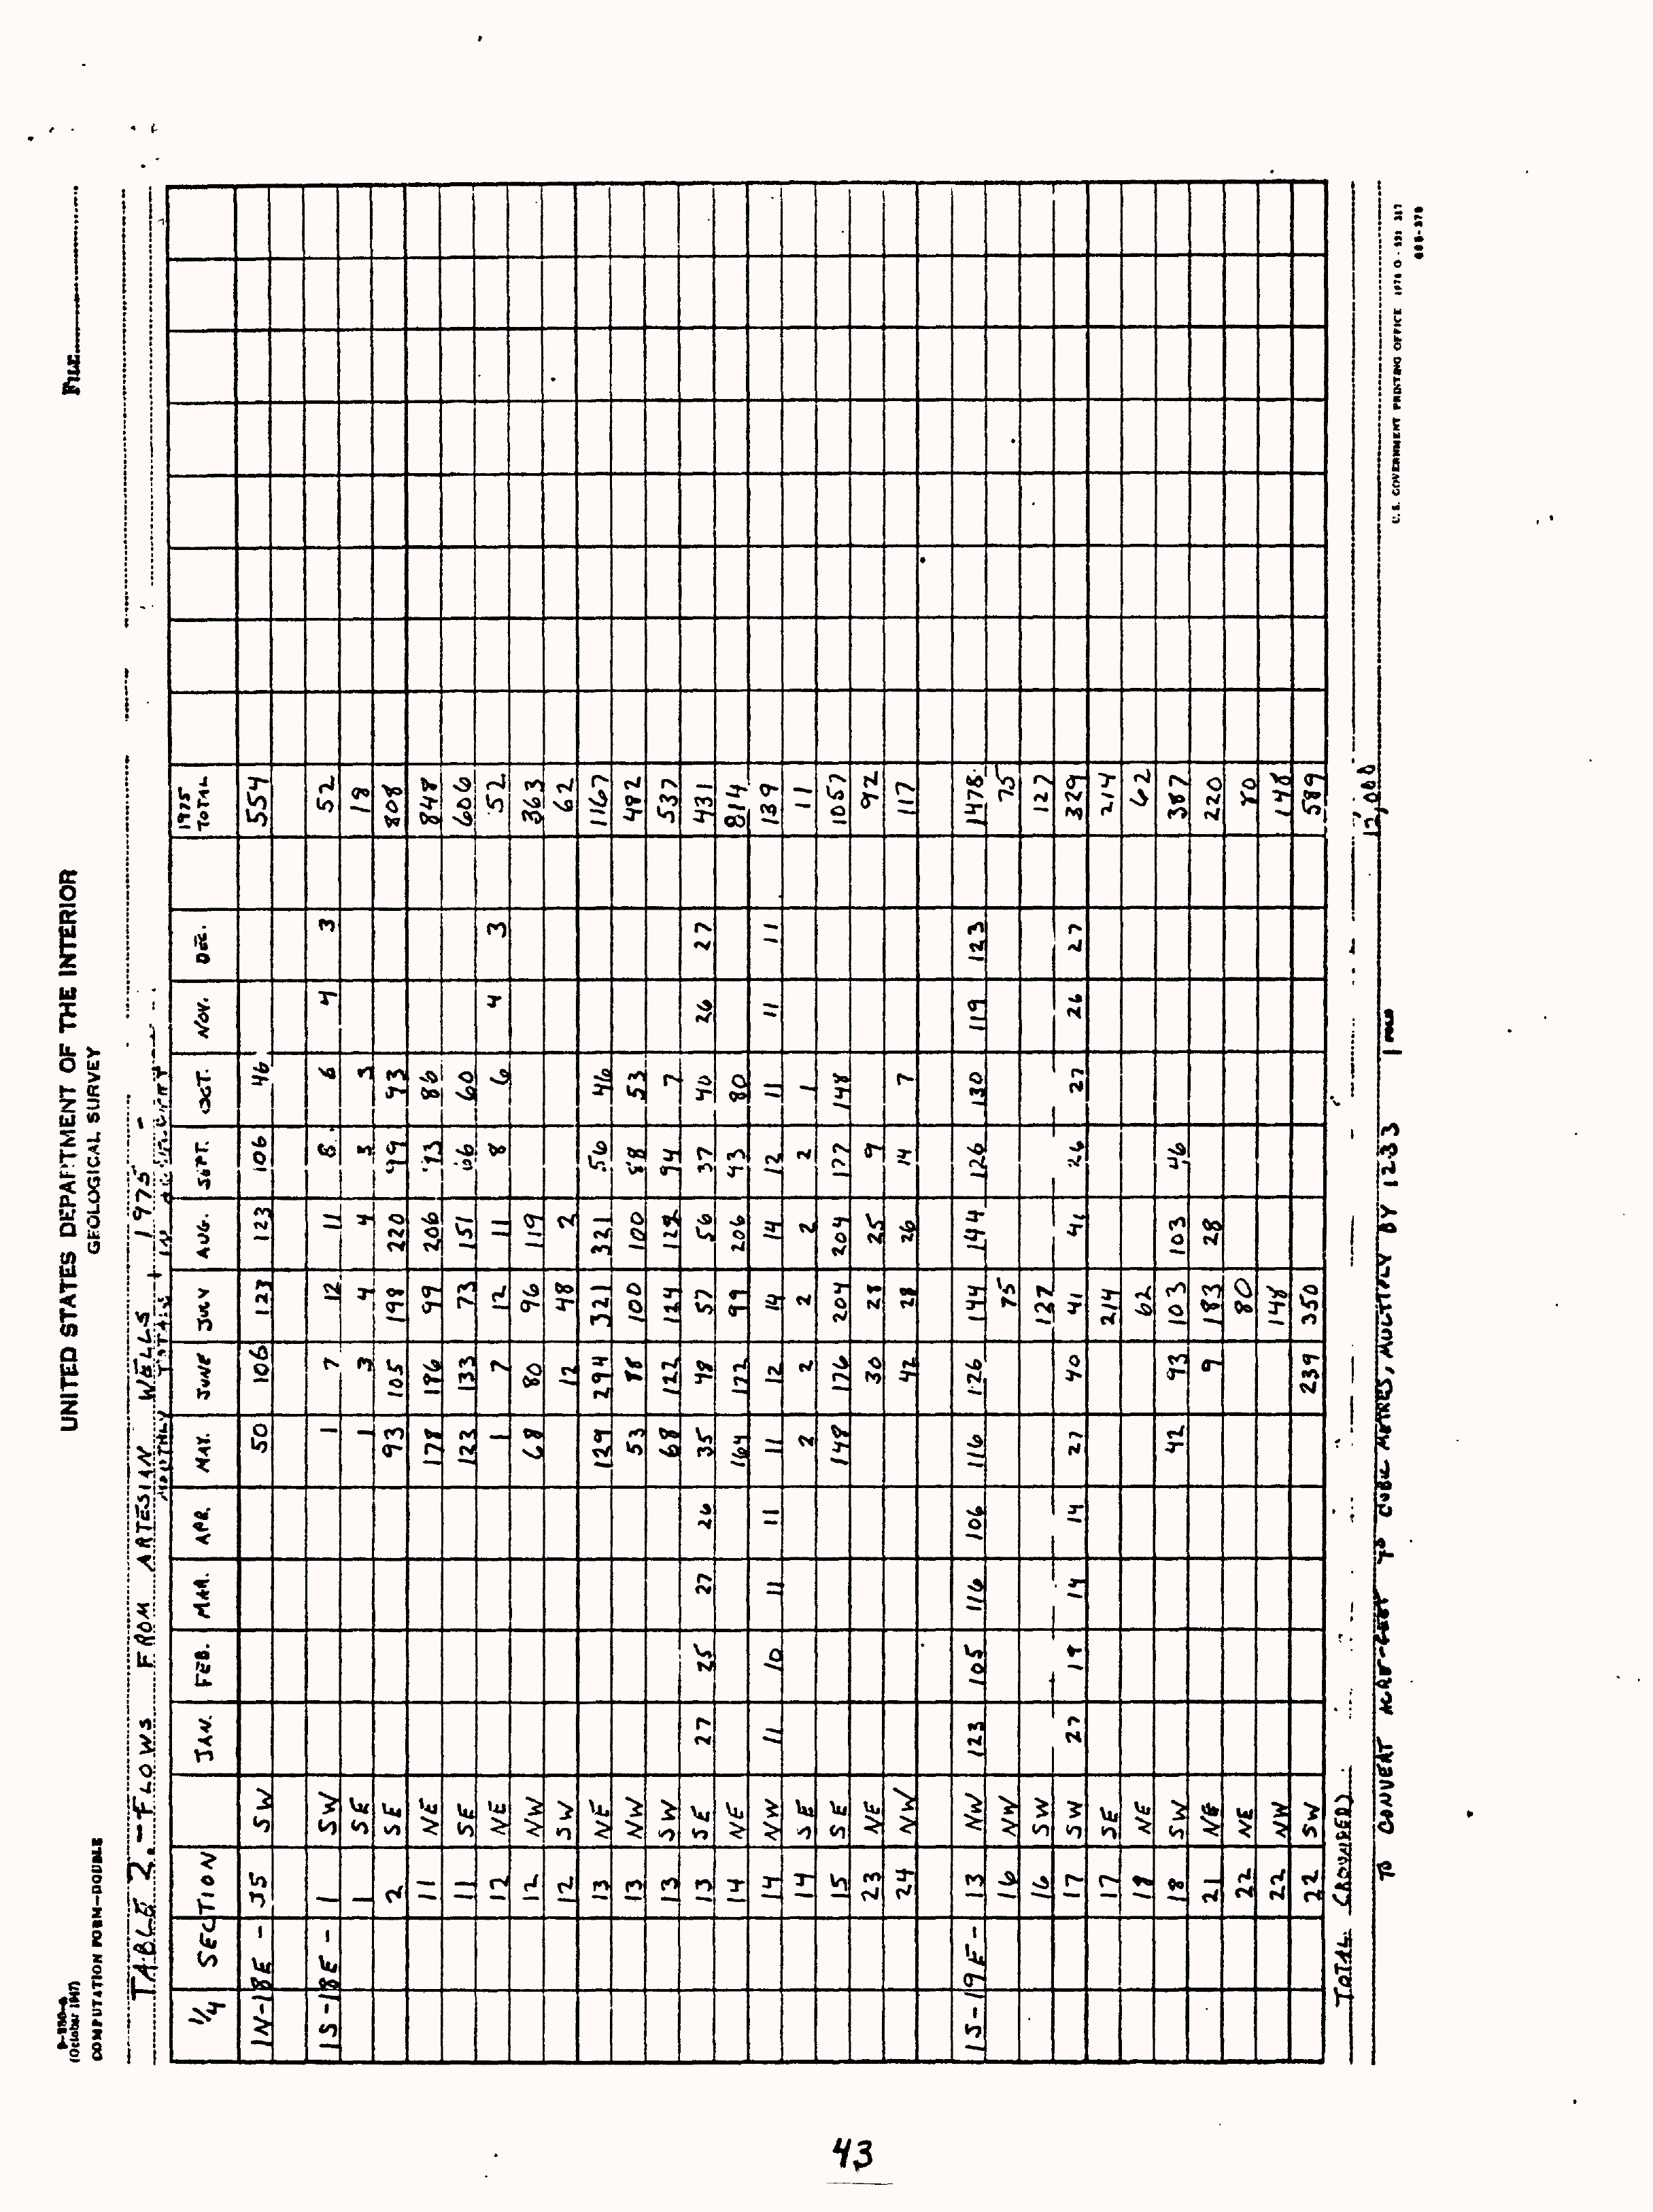 9-230-a
(October 1947)
COMPUTATION FORM—DOUBLE
UNITED STATES DEPARTMENT OF THE INTERIOR
GEOLOGICAL SURVEY
FILE
TABLE 2.—FLOWS FROM ARTESIAN WELLS 1975 -
MONTHLY TOTALS IN
1/4 SECTION JAN. FEB. MAR. APR. MAY. JUNE JULY AUG. SEPT. OCT. NOV. DEC. 1975 TOTAL
1N-18E - 35 SW 50 106 123 123 106 46 554
1S-18E - 1 SW 1 7 12 11 8 6 4 3 52
1 SE 1 3 4 4 3 3 18
2 SE 93 105 198 220 99 93 808
11 NE 178 186 99 206 93 86 848
11 SE 123 133 73 151 66 60 606
12 NE 1 7 12 11 8 6 4 3 52
12 NW 68 80 96 119 363
12 SW 12 48 2 62
13 NE 129 294 321 321 56 46 1167
13 NW 53 88 100 100 88 53 482
13 SW 68 122 124 122 94 7 537
13 SE 27 25 27 26 35 48 57 56 37 40 26 27 431
14 NE 164 172 99 206 93 80 814
14 NW 11 10 11 11 11 12 14 14 12 11 11 11 139
14 SE 2 2 2 2 2 1 11
15 SE 148 176 204 204 177 148 1057
23 NE 30 28 25 9 92
24 NW 42 28 26 14 7 117
1S-19E - 13 NW 123 105 116 106 116 126 144 144 126 130 119 123 1478
16 NW 75 75
16 SW 127 127
17 SW 27 19 14 14 27 40 41 41 26 27 26 27 329
17 SE 214 214
18 NE 62 62
18 SW 42 93 103 103 46 387
21 NE 9 183 28 220
22 NE 80 80
22 NW 148 148
22 SW 239 350 589
TOTAL (ROUNDED) 12,000
TO CONVERT ACRE-FEET TO CUBIC METRES, MULTIPLY BY 1233
U.S. GOVERNMENT PRINTING OFFICE
43